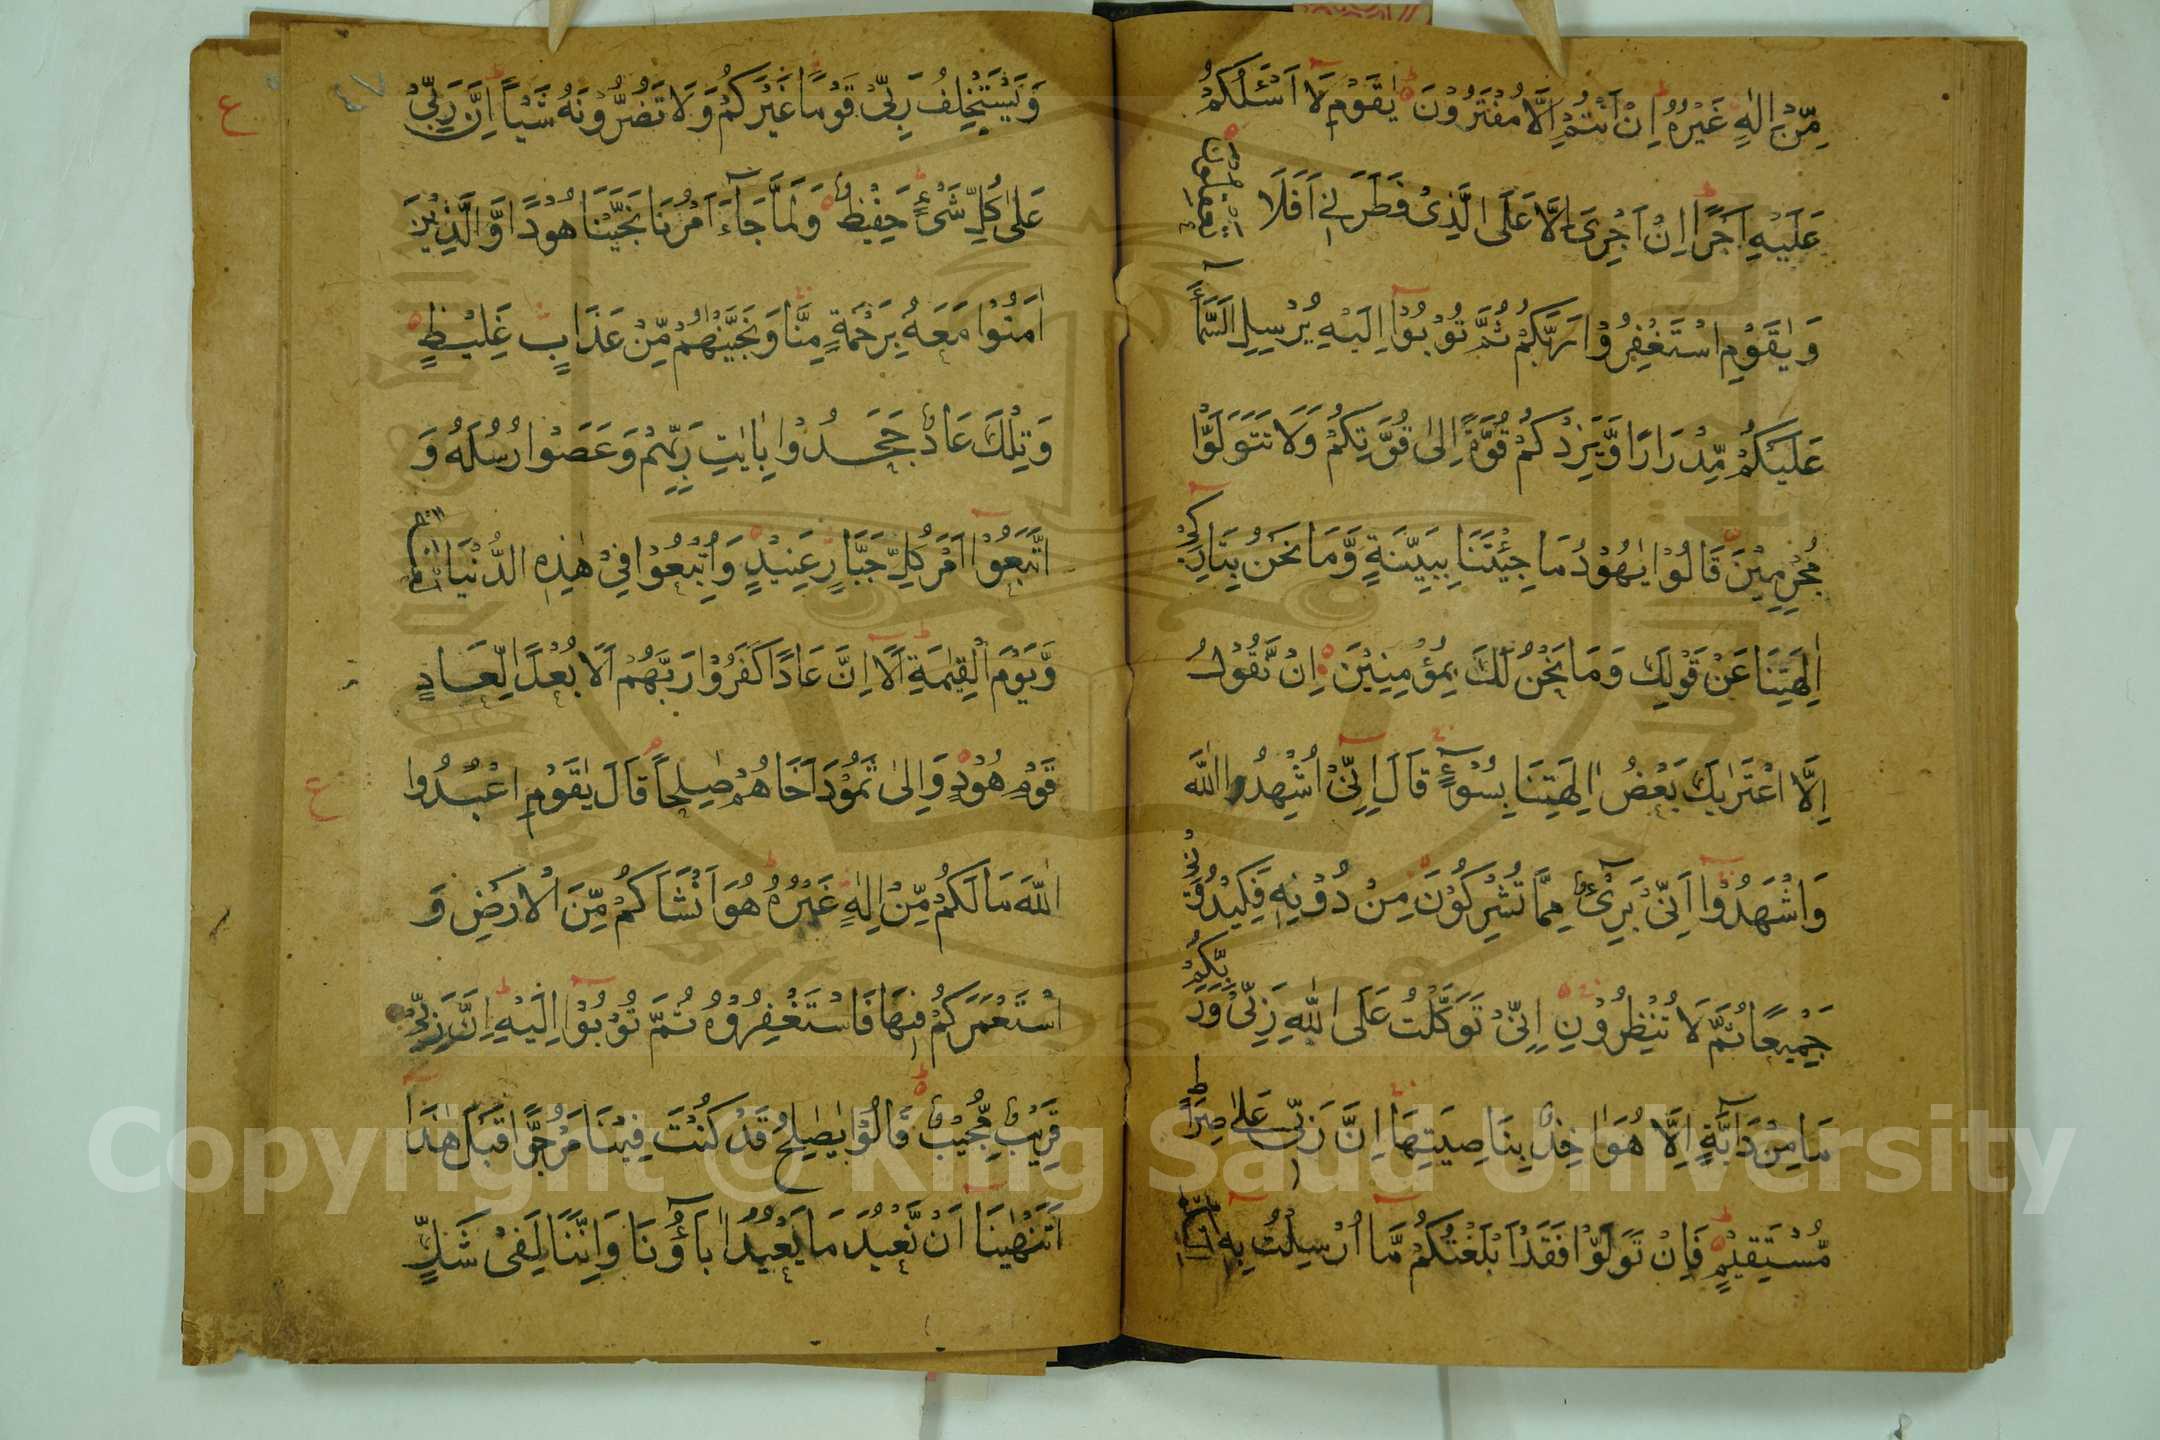 مِّنْ اِلٰهٍ غَيْرُهٗ اِنْ اَنْتُمْ اِلَّا مُفْتَرُوْنَ يٰقَوْمِ لَا اَسْـَٔلُكُمْ
عَلَيْهِ اَجْرًا اِنْ اَجْرِىَ اِلَّا عَلَى الَّذِىْ فَطَرَنِىْ اَفَلَا تَعْقِلُوْنَ
وَيٰقَوْمِ اسْتَغْفِرُوْا رَبَّكُمْ ثُمَّ تُوْبُوْا اِلَيْهِ يُرْسِلِ السَّمَآءَ
عَلَيْكُمْ مِّدْرَارًا وَّيَزِدْكُمْ قُوَّةً اِلٰى قُوَّتِكُمْ وَلَا تَتَوَلَّوْا
مُجْرِمِيْنَ قَالُوْا يٰهُوْدُ مَا جِئْتَنَا بِبَيِّنَةٍ وَّمَا نَحْنُ بِتَارِكِىْ
اٰلِهَتِنَا عَنْ قَوْلِكَ وَمَا نَحْنُ لَكَ بِمُؤْمِنِيْنَ اِنْ نَّقُوْلُ
اِلَّا اعْتَرٰىكَ بَعْضُ اٰلِهَتِنَا بِسُوْٓءٍ قَالَ اِنِّىْ اُشْهِدُ اللّٰهَ
وَاشْهَدُوْا اَنِّىْ بَرِىْٓءٌ مِّمَّا تُشْرِكُوْنَ مِنْ دُوْنِهٖ فَكِيْدُوْنِىْ
جَمِيْعًا ثُمَّ لَا تُنْظِرُوْنِ اِنِّىْ تَوَكَّلْتُ عَلَى اللّٰهِ رَبِّىْ وَرَبِّكُمْ
مَا مِنْ دَآبَّةٍ اِلَّا هُوَ اٰخِذٌ بِنَاصِيَتِهَا اِنَّ رَبِّىْ عَلٰى صِرَاطٍ
مُّسْتَقِيْمٍ فَاِنْ تَوَلَّوْا فَقَدْ اَبْلَغْتُكُمْ مَّا اُرْسِلْتُ بِهٖ اِلَيْكُمْ
وَيَسْتَخْلِفُ رَبِّىْ قَوْمًا غَيْرَكُمْ وَلَا تَضُرُّوْنَهٗ شَيْـًٔا اِنَّ رَبِّىْ
عَلٰى كُلِّ شَىْءٍ حَفِيْظٌ وَلَمَّا جَآءَ اَمْرُنَا نَجَّيْنَا هُوْدًا وَّالَّذِيْنَ
اٰمَنُوْا مَعَهٗ بِرَحْمَةٍ مِّنَّا وَنَجَّيْنٰهُمْ مِّنْ عَذَابٍ غَلِيْظٍ
وَتِلْكَ عَادٌ جَحَدُوْا بِاٰيٰتِ رَبِّهِمْ وَعَصَوْا رُسُلَهٗ وَ
اتَّبَعُوْا اَمْرَ كُلِّ جَبَّارٍ عَنِيْدٍ وَاُتْبِعُوْا فِىْ هٰذِهِ الدُّنْيَا لَعْنَةً
وَّيَوْمَ الْقِيٰمَةِ اَلَا اِنَّ عَادًا كَفَرُوْا رَبَّهُمْ اَلَا بُعْدًا لِّعَادٍ
قَوْمِ هُوْدٍ وَاِلٰى ثَمُوْدَ اَخَاهُمْ صٰلِحًا قَالَ يٰقَوْمِ اعْبُدُوا
اللّٰهَ مَا لَكُمْ مِّنْ اِلٰهٍ غَيْرُهٗ هُوَ اَنْشَاَكُمْ مِّنَ الْاَرْضِ وَ
اسْتَعْمَرَكُمْ فِيْهَا فَاسْتَغْفِرُوْهُ ثُمَّ تُوْبُوْا اِلَيْهِ اِنَّ رَبِّىْ
قَرِيْبٌ مُّجِيْبٌ قَالُوْا يٰصٰلِحُ قَدْ كُنْتَ فِيْنَا مَرْجُوًّا قَبْلَ هٰذَا
اَتَنْهٰىنَا اَنْ نَّعْبُدَ مَا يَعْبُدُ اٰبَآؤُنَا وَاِنَّنَا لَفِىْ شَكٍّ
ع
ع
Copyright © King Saud University